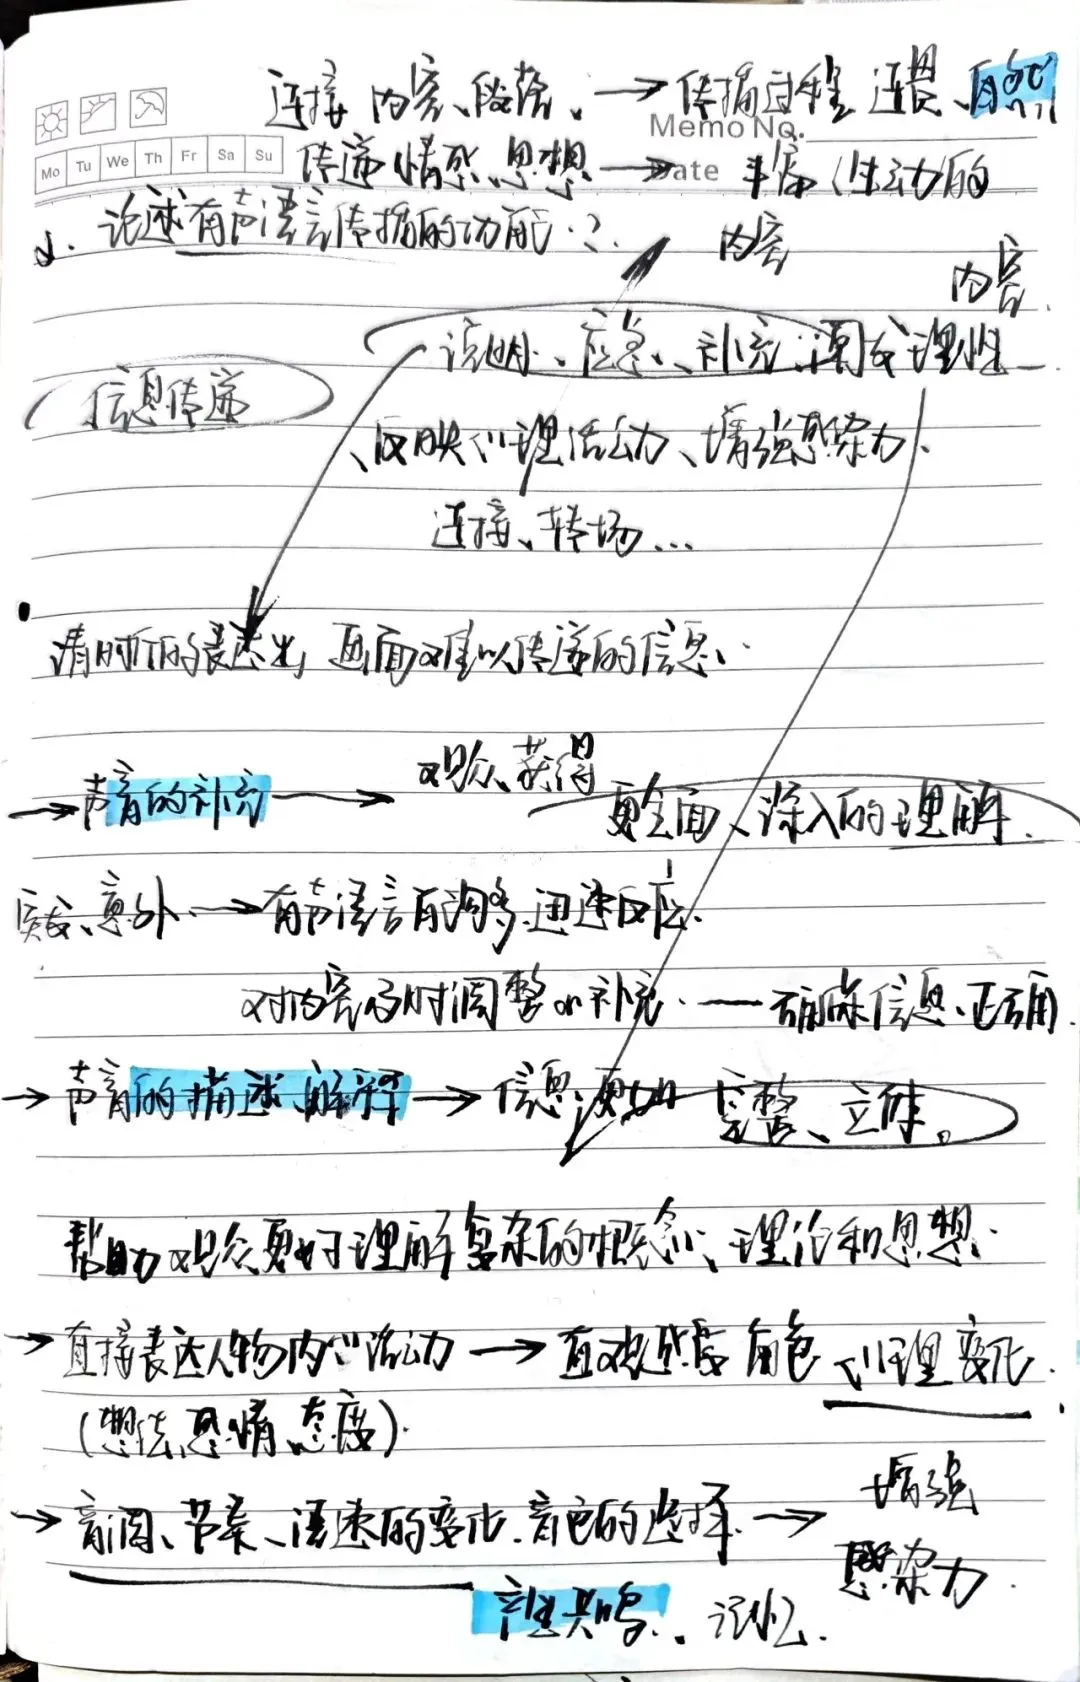 连接内容、段落、→传播过程连贯、自然
Memo No.
Mo Tu We Th Fr Sa Su
传递情感、思想→丰富、生动的
Date
2. 论述有声语言传播的功能.
内容
内容
说明、应急、补充、调动理性
信息传递
、反映心理活动、增强感染力、
连接、转场...
清晰的表达出画面难以传递的信息、
→声音的补充→观众获得
更全面、深入的理解.
突发、意外→有声语言能够迅速反应.
对内容及时调整和补充.——确保信息、正确
→声音的描述、解释→信息更加完整、立体。
帮助观众更好理解复杂的概念、理论和思想.
→直接表达人物内心活动→直观感受角色心理变化.
(想法、思情、态度).
→音调、节奏、语速的变化.音色的选择.→增强
感染力.
共鸣.、记忆.